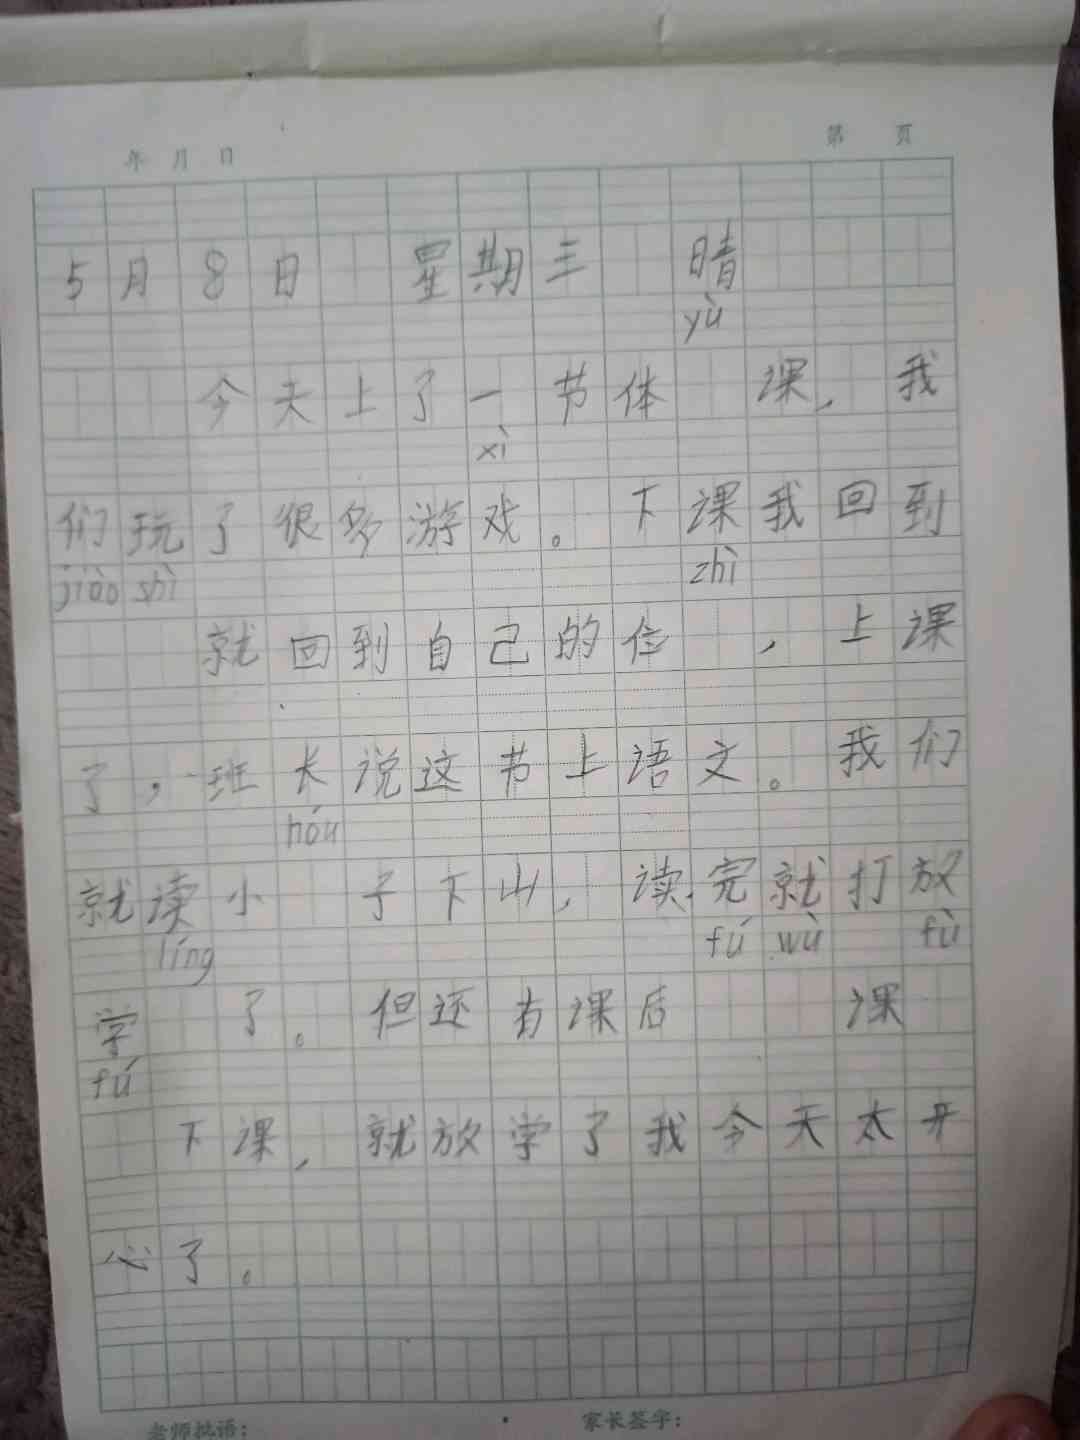 年 月 日 第 页
5月8日 星期三 晴
yù
今天上了一节体 课,我
xì
们玩了很多游戏。下课我回到
jiào shì zhì
就回到自己的位 ,上课
了,班长说这节上语文。我们
hóu
就读小 子下山,读完就打放
líng fú wù fù
学 了。但还有课后 课
fú
下课,就放学了我今天太开
心了。
老师批语: 家长签字: